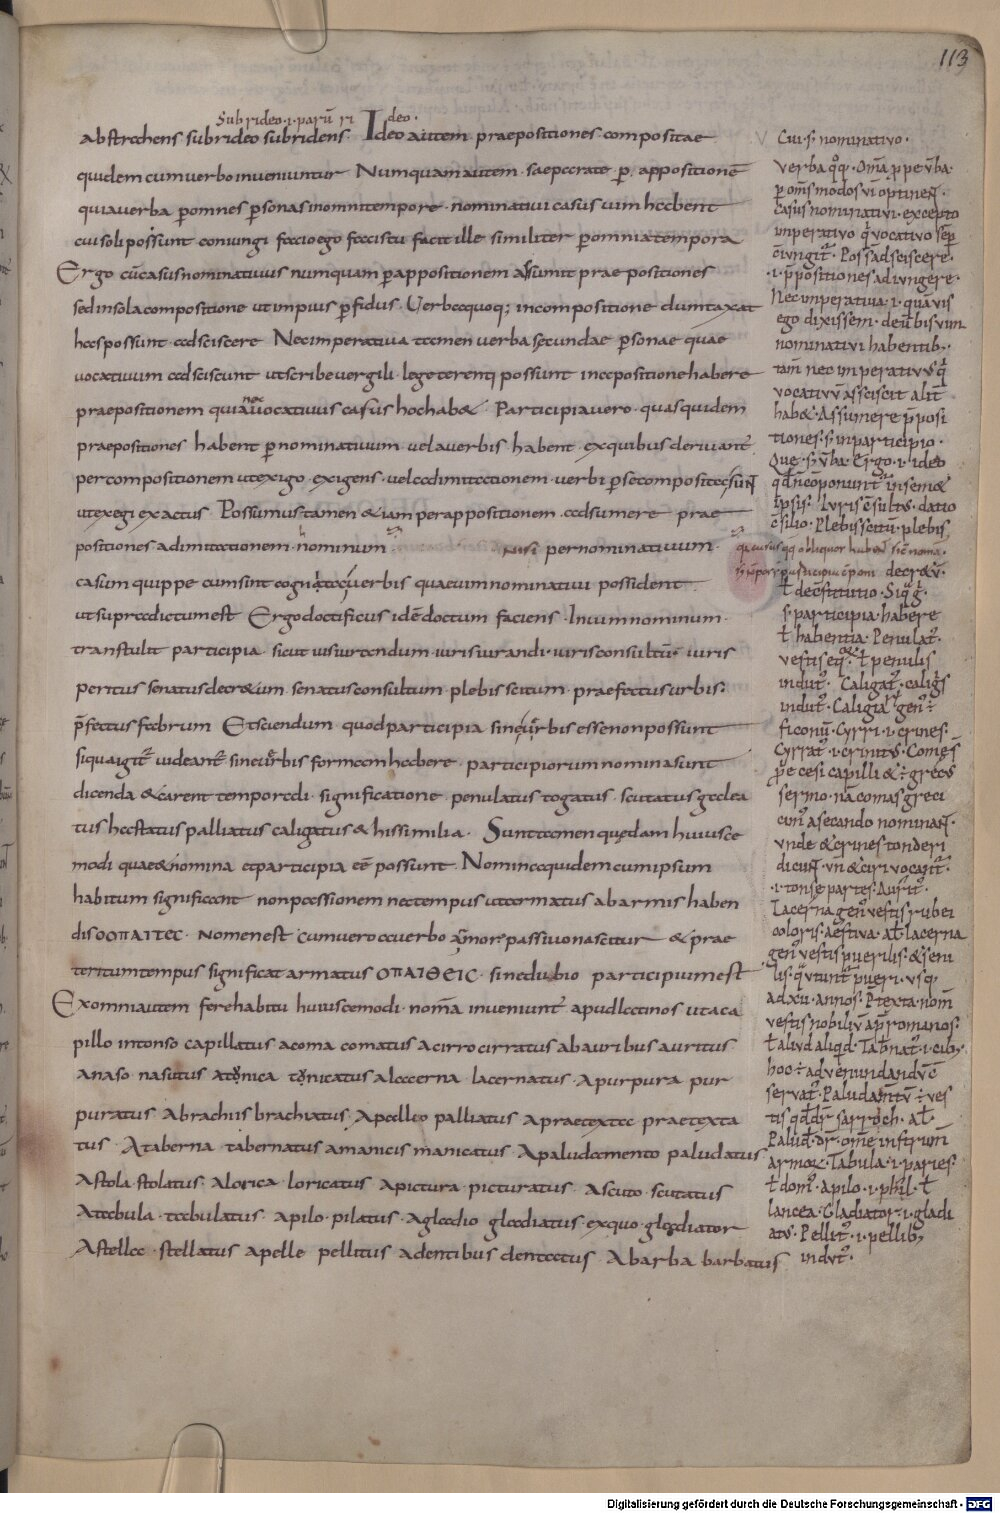 113
Subrideo·i·parū ri deo·
abstrahens subrideo subridens· Ideo autem praepositiones compositae
quidem cum verbo inveniuntur Numquam autem saeparate ꝑ appositionē
quia verba ꝑ omnes ꝑsonas in omni tempore · nominativi casus vim habent
cui soli possunt coniungi facio ego facis tu facit ille similiter ꝑ omnia tempora
Ergo cū casus nominativus numquam ꝑ appositionem assumit praepositiones
sed in sola compositione ut impius ꝑfidus · Verba quoq; in compositione dumtaxat
has possunt adsciscere Nec imperativa tamen verba secundae ꝑsonae quae
vocativum adsciscunt ut scribe vergili · lege terenti possunt in appositione habere
nec
praepositionem quia vocativus casus hoc hab& · Participia vero · quas quidem
praepositiones habent ꝑ nominativum vel a verbis habent ex quibus derivant̄
per compositionem ut exigo exigens · vel ad imitationem verbi ꝑ se composita sun̄
ut exegi exactus · Possumus tamen &iam per appositionem adsumere prae
positiones ad imitationem nominum nisi per nominativum ·
casum quippe cum sint cognata verbis quae cum nominativi possident
ut supra dictum est Ergo doctificus idē doctum faciens · In vim nominum ·
transtulit participia · sicut iusiurandum · iurisiurandi · iurisconsultū · iuris
peritus senatus decr&um senatus consultum · plebis scitum · praefectus urbis ·
p̄fectus fabrum Et sciendum quod participia sine verbis esse non possunt
si qua igit̄ videant̄ sine verbis formam habere · participiorum nomina sunt
dicenda & carent temporali · significatione · penulatus togatus · scutatus galea
tus hastatus palliatus caligatus & his similia · Sunt tamen quędam huiusce
modi quae & nomina & participia eē possunt · Nomina quidem cum ipsum
habitum significant non passionem nec tempus ut armatus ab armis haben
dis ΟΟΠΛΙΤΕC · nomen est cum vero a verbo armor passivo nascitur & prae
teritum tempus significat armatus ΟΠΛΙΘΕΙC · sine dubio participium est
Ex omni autem fere habitu huiuscemodi · nomīa inveniunt̄ apud latinos ut a ca
pillo intonso capillatus a coma comatus a cirro cirratus ab auribus auritus
a naso nasutus a tonica tonicatus a lacerna lacernatus · A purpura pur
puratus · A brachiis brachiatus · A pallio palliatus a praetexta praetexta
tus · A taberna tabernatus a manicis manicatus · A paludamento paludatus
A stola stolatus · A lorica loricatus a pictura picturatus · A scuto scutatus
A tabula tabulatus · a pilo · pilatus · A gladio gladiatus · ex quo gladiator
A stella · stellatus a pelle pellitus a dentibus dentatus · A barba barbatus
Cui · s · nominativo ·
verba qͦqͦ · Om̄a ꝓpe v̄ba
ꝑ om̄s modos vī optinen̄ ·
casus nominativi · excepto
imperativo q̄ vocativo sēp
cōiungit̄ · Poss̄ adsciscere ·
·i· p̄positiones adiungere ·
Nec imperativa · i · quāvis
ego dixissem · de v̄bis vim
nominativi habentib; ·
tam̄ nec imperativus q̄
vocativū asciscit alit̄
hab& · Assumere p̄posi
tiones · s · in participio ·
Que · s · v̄ba · Ergo · i · ideo
ipsis · Iuris c̄sultus · datio
c̄silio · Plebis scitū · plebis
decr&ū ·
ł de c̄stitutio · Siq̄ g̊ ·
s · participia · habere
ł habentia · Penulat̉ ·
vestis eq̄ · ł penulis
indut̉ · Caligat̉ · caligis
indut̉ · Caligā gen̉ ÷
ficonū · Cyrri · i · crines ·
Cyrrat̉ · i · crinitus · Comęs
ꝓꝑe cęsi capilli & ÷ grecus
sermo · nā comas greci
a secando nominan̄ ·
unde & crines tonderi
dicun̄ · un̄ & ciri vocant̄
·i· tonse partes · Aurit̉ ·
Lacerna gen̉ vestis rubei
coloris · aestiva · al̄ lacerna
gen̉ vestis puerilis · & seni
lis · q̄ utunt̄ pueri · usq;
ad xii · annos · P̄texta · nom̄
vestis nobiliū ap̄ romanos ·
ł aliud aliqd̄ · Tab̄nat̉ · i · cub;
hoc ÷ ad venundandū ē
servat̉ · Paludam̄tū ÷ ves
tis q̄ d̄r sarroch · al̄ ·
Palud̄ · d̄r · om̄e instrum̄
armoꝝ · Tabula · i · paries ·
ł dom̉ · A pilo · i · phil · ł
lancea · Gladiator · i · gladi
atus · Pellit̉ · i · pellib;
indut̉ ·
Digitalisierung gefördert durch die Deutsche Forschungsgemeinschaft - DFG